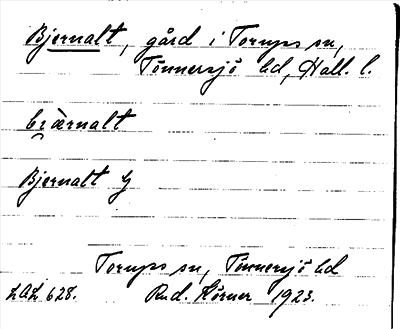 Bjernalt, gård i Torups sn,
Tönnersjö hd, Hall. l.
Bjernalt G
Torups sn, Tönnersjö hd
LAL 628. Rud. Körner 1923.